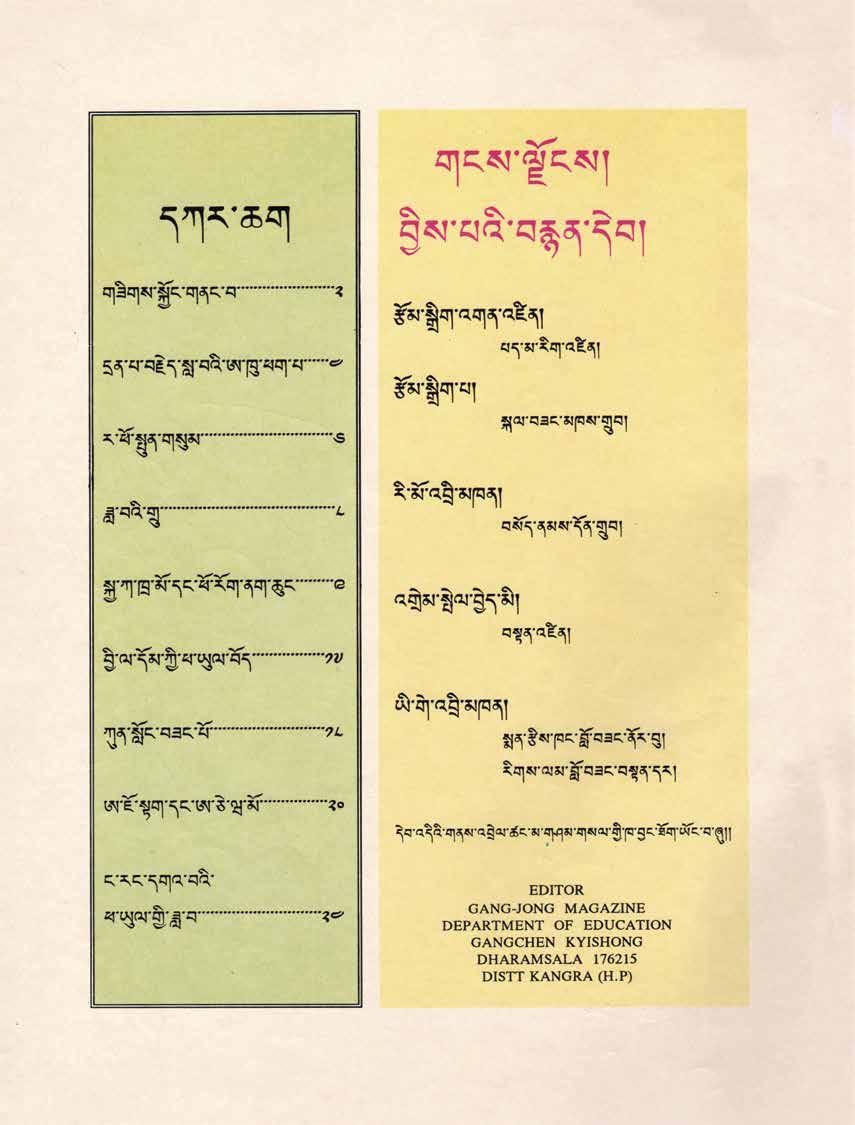 དཀར་ཆག
གཟིགས་སྐྱོང་གནང་བ་························༢
དྲན་པ་བརྗེད་སླ་བའི་ཨ་ཁུ་ཕག་པ་······༤
ར་ཕོ་སྤུན་གསུམ་································༦
ཟླ་བའི་གྲུ་············································༨
སྐྱ་ཀ་ཁྲ་མོ་དང་ཕོ་རོག་ནག་ཆུང་·········༩
བྱི་ལ་དོམ་ཀྱི་ཕ་ཡུལ་བོད་··················༡༥
ཀུན་སློང་བཟང་པོ་····························༡༨
ཨ་ཇོ་སྟག་དང་ཨ་ཅེ་ལྷ་མོ་·················༢༠
ང་རང་དགའ་བའི་
ཕ་ཡུལ་གྱི་ཟླ་བ་·······························༢༤
གངས་ལྗོངས།
བྱིས་པའི་བརྙན་དེབ།
རྩོམ་སྒྲིག་འགན་འཛིན།
པད་མ་རིག་འཛིན།
རྩོམ་སྒྲིག་པ།
སྐལ་བཟང་མཁས་གྲུབ།
རི་མོ་འབྲི་མཁན།
བསོད་ནམས་དོན་གྲུབ།
འགྲེམ་སྤེལ་བྱེད་མི།
བསྟན་འཛིན།
ཡི་གེ་འབྲི་མཁན།
སྨན་རྩིས་ཁང་བློ་བཟང་ནོར་བུ།
རིགས་ལམ་བློ་བཟང་བསྟན་དར།
དེབ་འདིའི་གནས་འབྲེལ་ཚང་མ་གཤམ་གསལ་གྱི་ཁ་བྱང་ཐོག་ཡོང་བ་ཞུ།།
EDITOR
GANG-JONG MAGAZINE
DEPARTMENT OF EDUCATION
GANGCHEN KYISHONG
DHARAMSALA 176215
DISTT KANGRA (H.P)